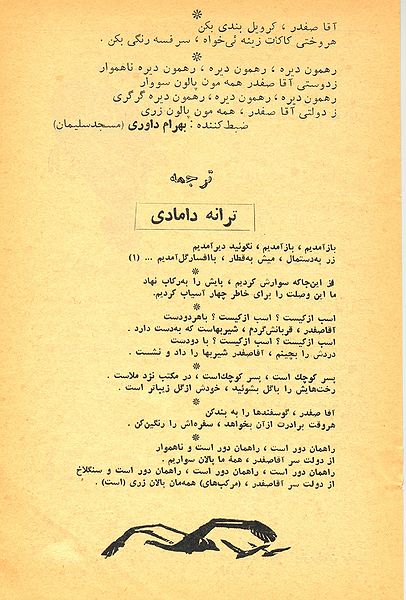 آقا صفدر ، کرویل بندی بکن
هروختی کاکات زینه ئی‌خواه ، سرفسه رنگی بکن .
رهمون دیره ، رهمون دیره ، رهمون دیره ناهموار
زدوستی آقا صفدر همه مون پالون سووار
رهمون دیره ، رهمون دیره ، رهمون دیره گرگری
ز دولتی آقا صفدر ، همه مون پالون زری
ضبط‌کننده : بهرام داوری (مسجدسلیمان)
ترجمه
ترانه دامادی
بازآمدیم ، بازآمدیم ، نگوئید دیرآمدیم
زر به‌دستمال ، میش به‌قطار ، باافسارگل‌آمدیم ... (۱)
از این‌جاکه سوارش کردیم ، پایش را به‌رکاب نهاد
ما این وصلت را برای خاطر چهار آسیاب کردیم.
اسب ازکیست ؟ اسب ازکیست ؟ باهردودست
آقاصفدر ، قربانش‌گردم ، شیربهاست که به‌دست دارد .
اسب ازکیست ؟ اسب ازکیست ؟ با دودست
دردش را بچینم ، آقاصفدر شیربها را داد و نشست .
پسر کوچك است ، پسر کوچك‌است ، در مکتب نزد ملاست .
رخت‌هایش را باگل بشوئید ، خودش ازگل زیباتر است .
آقا صفدر ، گوسفندها را به بندکن
هروقت برادرت ازآن بخواهد ، سفره‌اش را رنگین‌کن .
راهمان دور است ، راهمان دور است و ناهموار
از دولت سر آقاصفدر ، همهٔ ما پالان سواریم .
راهمان دور است ، راهمان دور است ، راهمان دور است و سنگلاخ
از دولت سر آقاصفدر ، (مرکب‌های) همه‌مان پالان زری (است) .